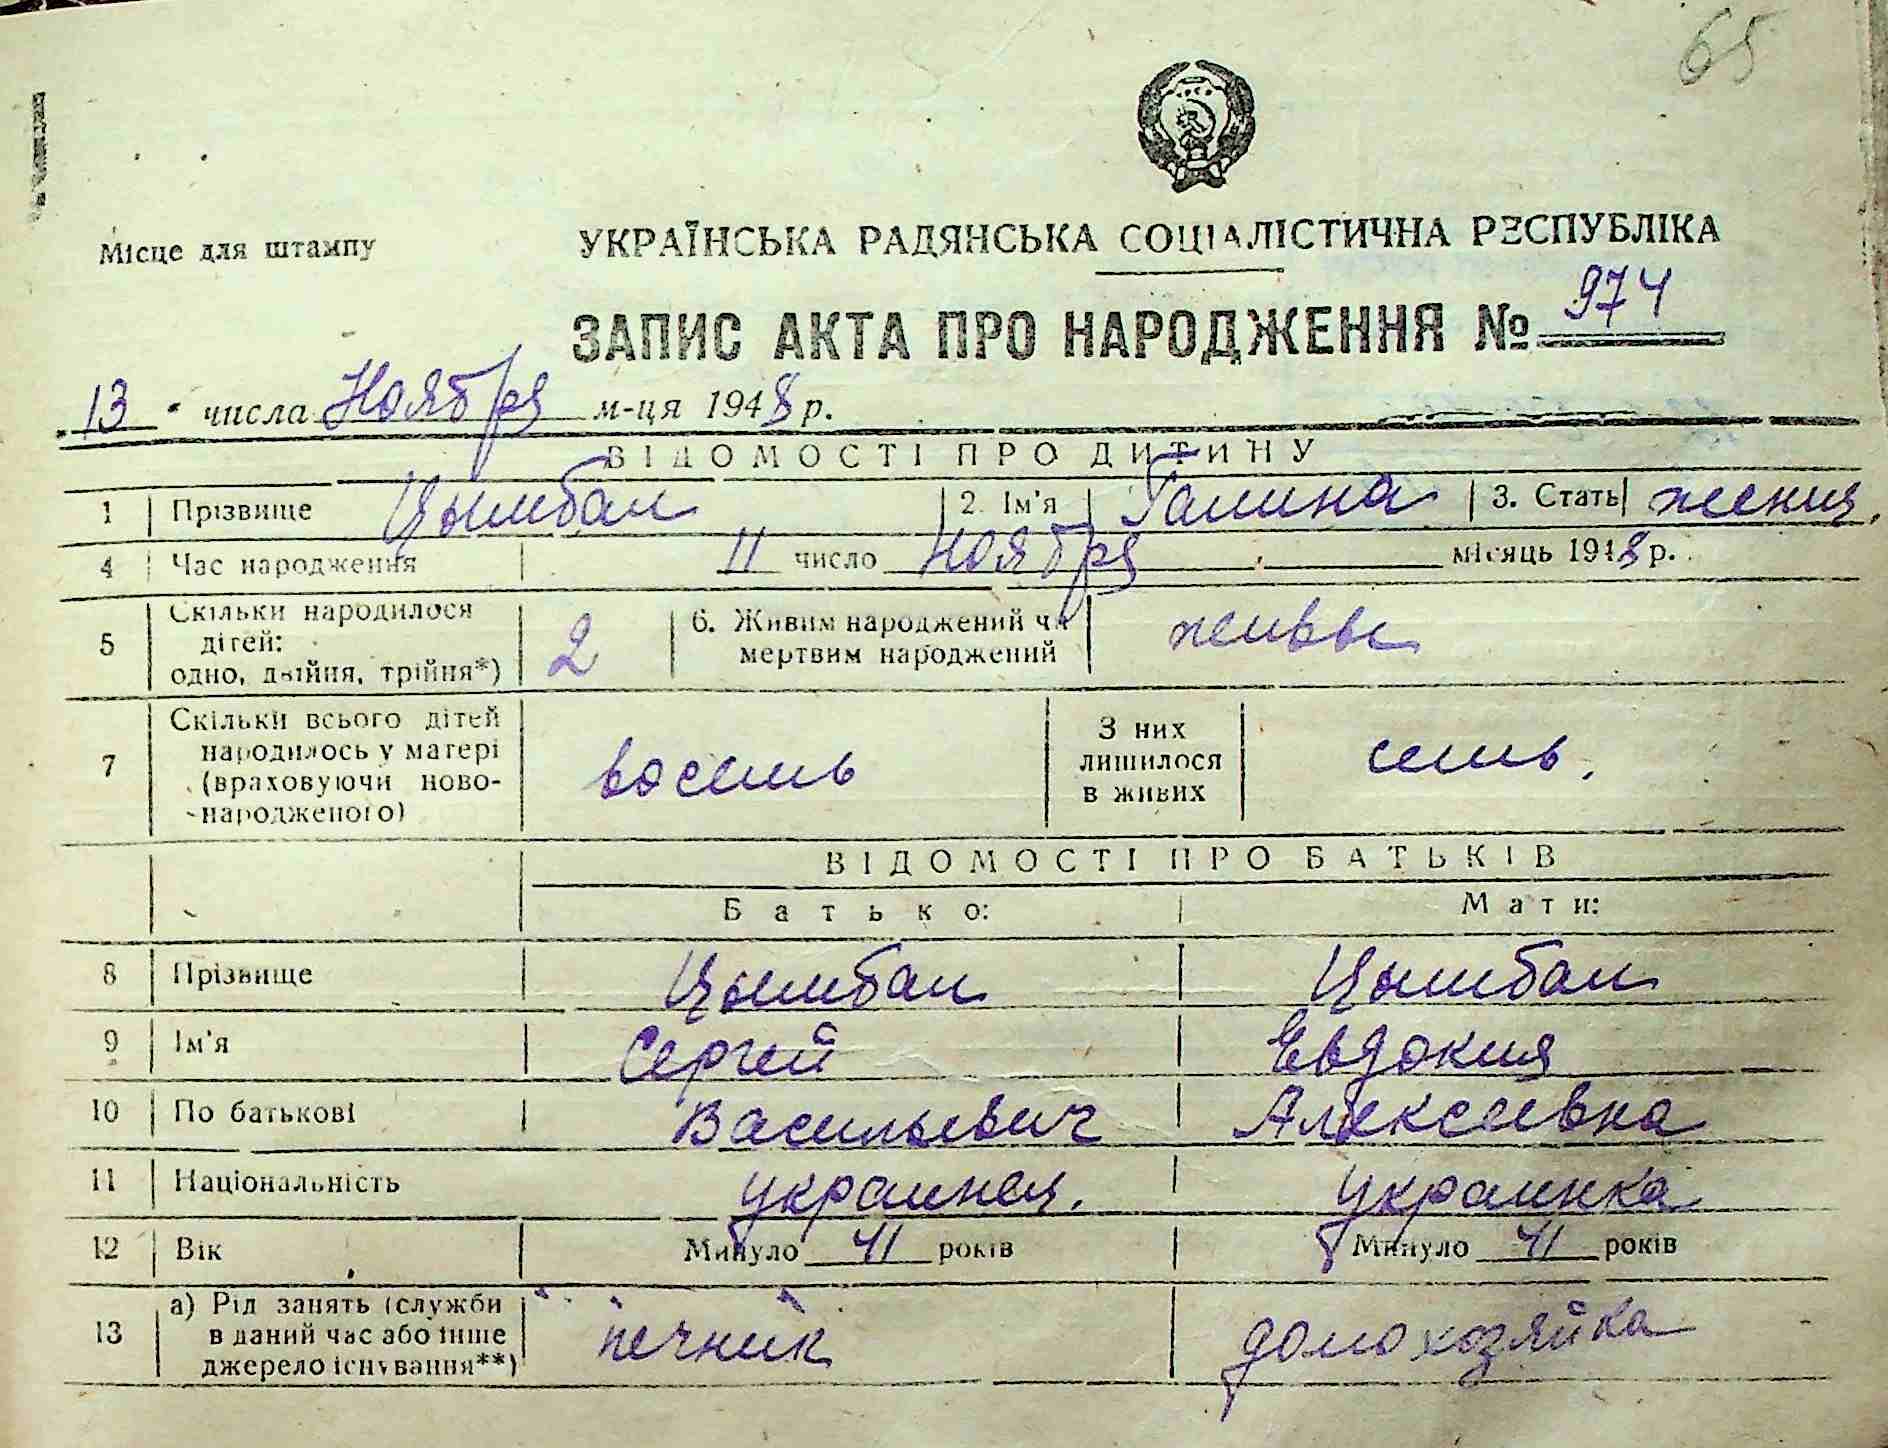 65
Місце для штампу
УКРАЇНСЬКА РАДЯНСЬКА СОЦІАЛІСТИЧНА РЕСПУБЛІКА
ЗАПИС АКТА ПРО НАРОДЖЕННЯ № 974
13 числа Ноября м-ця 1948 р.
ВІДОМОСТІ ПРО ДИТИНУ
1 Прізвище Цымбал 2. Ім'я Галина 3. Стать женщ.
4 Час народження 11 число Ноября місяць 1948 р.
5 Скільки народилося дітей: одно, двійня, трійня*) 2 6. Живим народжений чи мертвим народжений живые
7 Скільки всього дітей народилось у матері (враховуючи ново-народженого) восемь З них лишилося в живих семь.
ВІДОМОСТІ ПРО БАТЬКІВ
Батько: Мати:
8 Прізвище Цымбал Цымбал
9 Ім'я Сергей Евдокия
10 По батькові Васильевич Алексеевна
11 Національність украинец. Украинка
12 Вік Минуло 41 років Минуло 41 років
13 а) Рід занять (служби в даний час або інше джерело існування**) печник домохозяйка